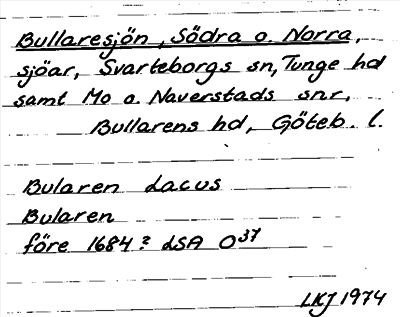 Bullaresjön, Södra o. Norra,
sjöar, Svarteborgs sn, Tunge hd
samt Mo o. Naverstads snr,
Bullarens hd, Göteb. l.
Bularen Lacus
Bularen
före 1684? LSA O37
LKJ 1974